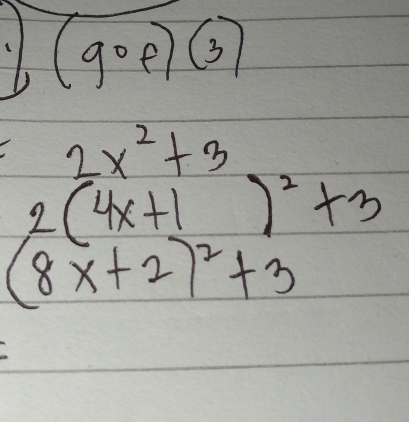 ), (gof)(3)
= 2x² + 3
2(4x+1 )² + 3
(8x+2)² + 3
=